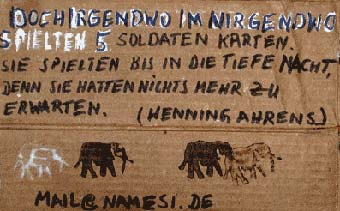 DOCH IRGENDWO IM NIRGENDWO
SPIELTEN 5 SOLDATEN KARTEN.
SIE SPIELTEN BIS IN DIE TIEFE NACHT,
DENN SIE HATTEN NICHTS MEHR ZU
ERWARTEN. (HENNING AHRENS)
MAIL@NAMESI.DE